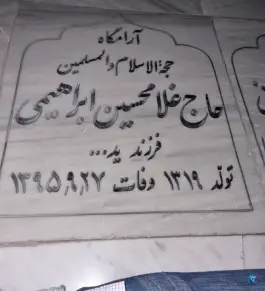 آرامگاه
حجةالاسلام والمسلمین
حاج غلامحسین ابراهیمی
فرزند ید...
تولد ۱۳۱۹ وفات ۱۳۹۵٫۹٫۲۷